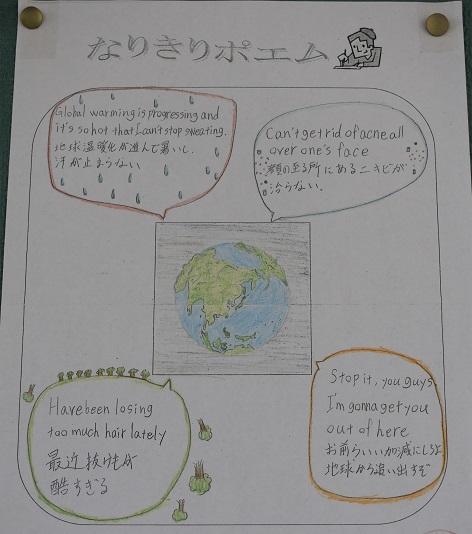 なりきりポエム
Global warming is progressing and
it's so hot that I can't stop sweating.
地球温暖化が進んで暑いし、
汗が止まらない
Can't get rid of acne all
over one's face
顔の至る所にあるニキビが
治らない.
Have been losing
too much hair lately
最近抜け毛が
酷すぎる
Stop it, you guys.
I'm gonna get you
out of here
お前らいい加減にしろよ
地球から追い出すぞ